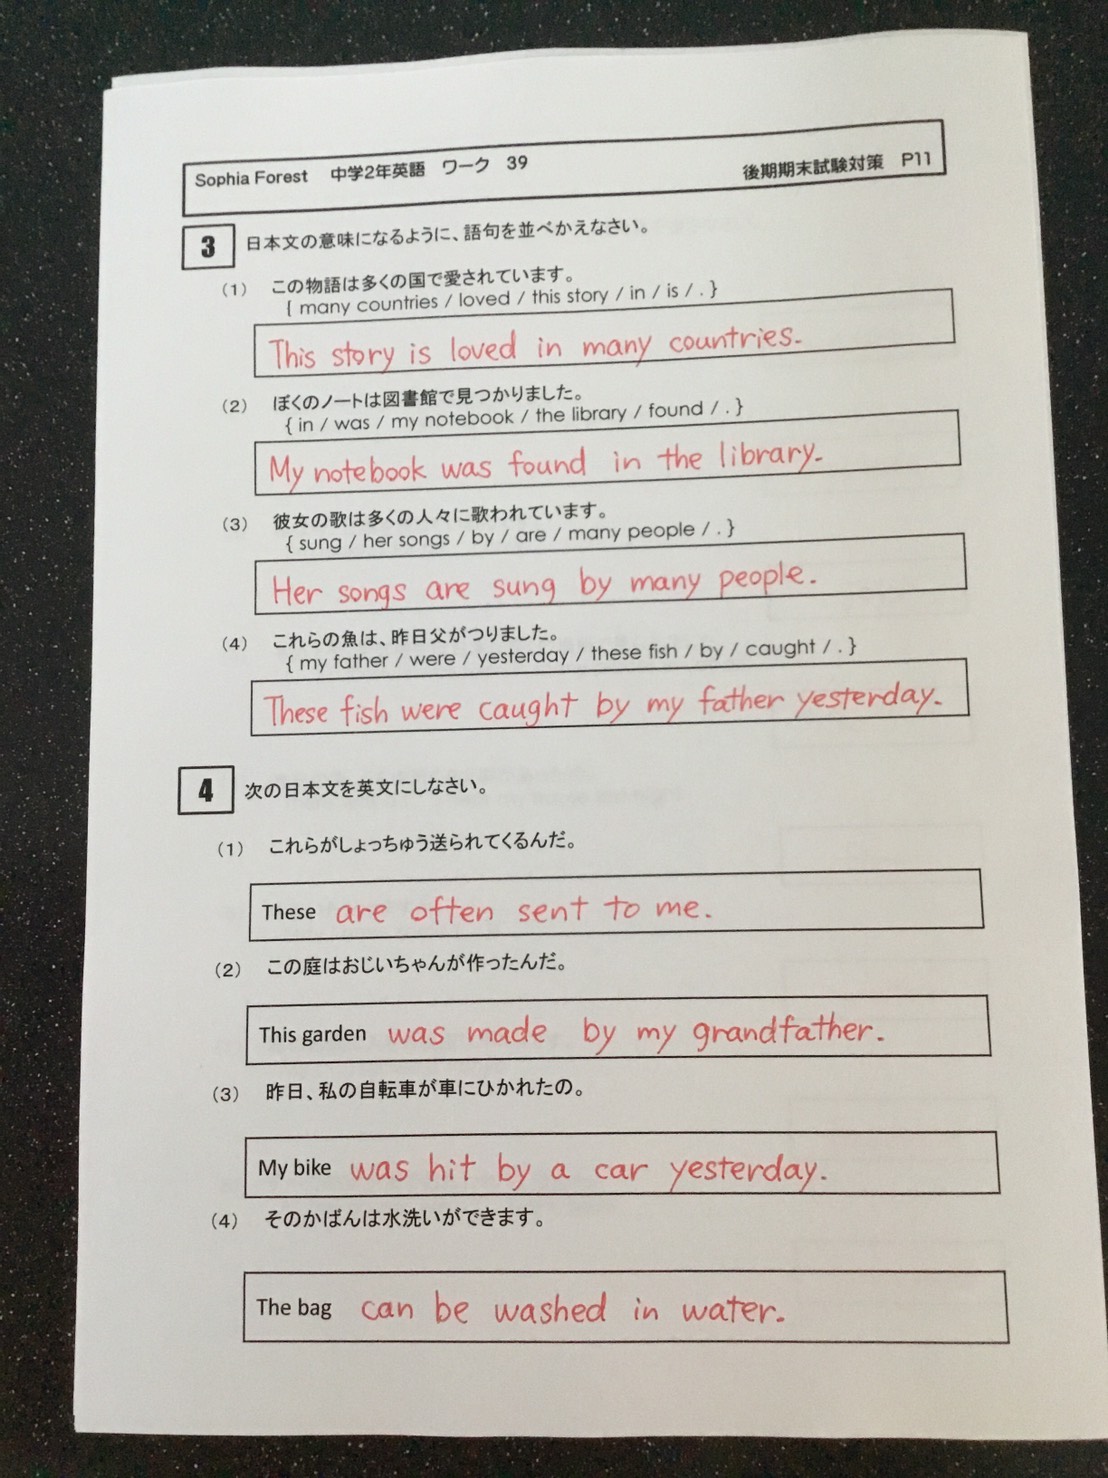 Sophia Forest 中学2年英語 ワーク 39
後期期末試験対策 P11
3 日本文の意味になるように、語句を並べかえなさい。
(1) この物語は多くの国で愛されています。
{ many countries / loved / this story / in / is / . }
This story is loved in many countries.
(2) ぼくのノートは図書館で見つかりました。
{ in / was / my notebook / the library / found / . }
My notebook was found in the library.
(3) 彼女の歌は多くの人々に歌われています。
{ sung / her songs / by / are / many people / . }
Her songs are sung by many people.
(4) これらの魚は、昨日父がつりました。
{ my father / were / yesterday / these fish / by / caught / . }
These fish were caught by my father yesterday.
4 次の日本文を英文にしなさい。
(1) これらがしょっちゅう送られてくるんだ。
These are often sent to me.
(2) この庭はおじいちゃんが作ったんだ。
This garden was made by my grandfather.
(3) 昨日、私の自転車が車にひかれたの。
My bike was hit by a car yesterday.
(4) そのかばんは水洗いができます。
The bag can be washed in water.